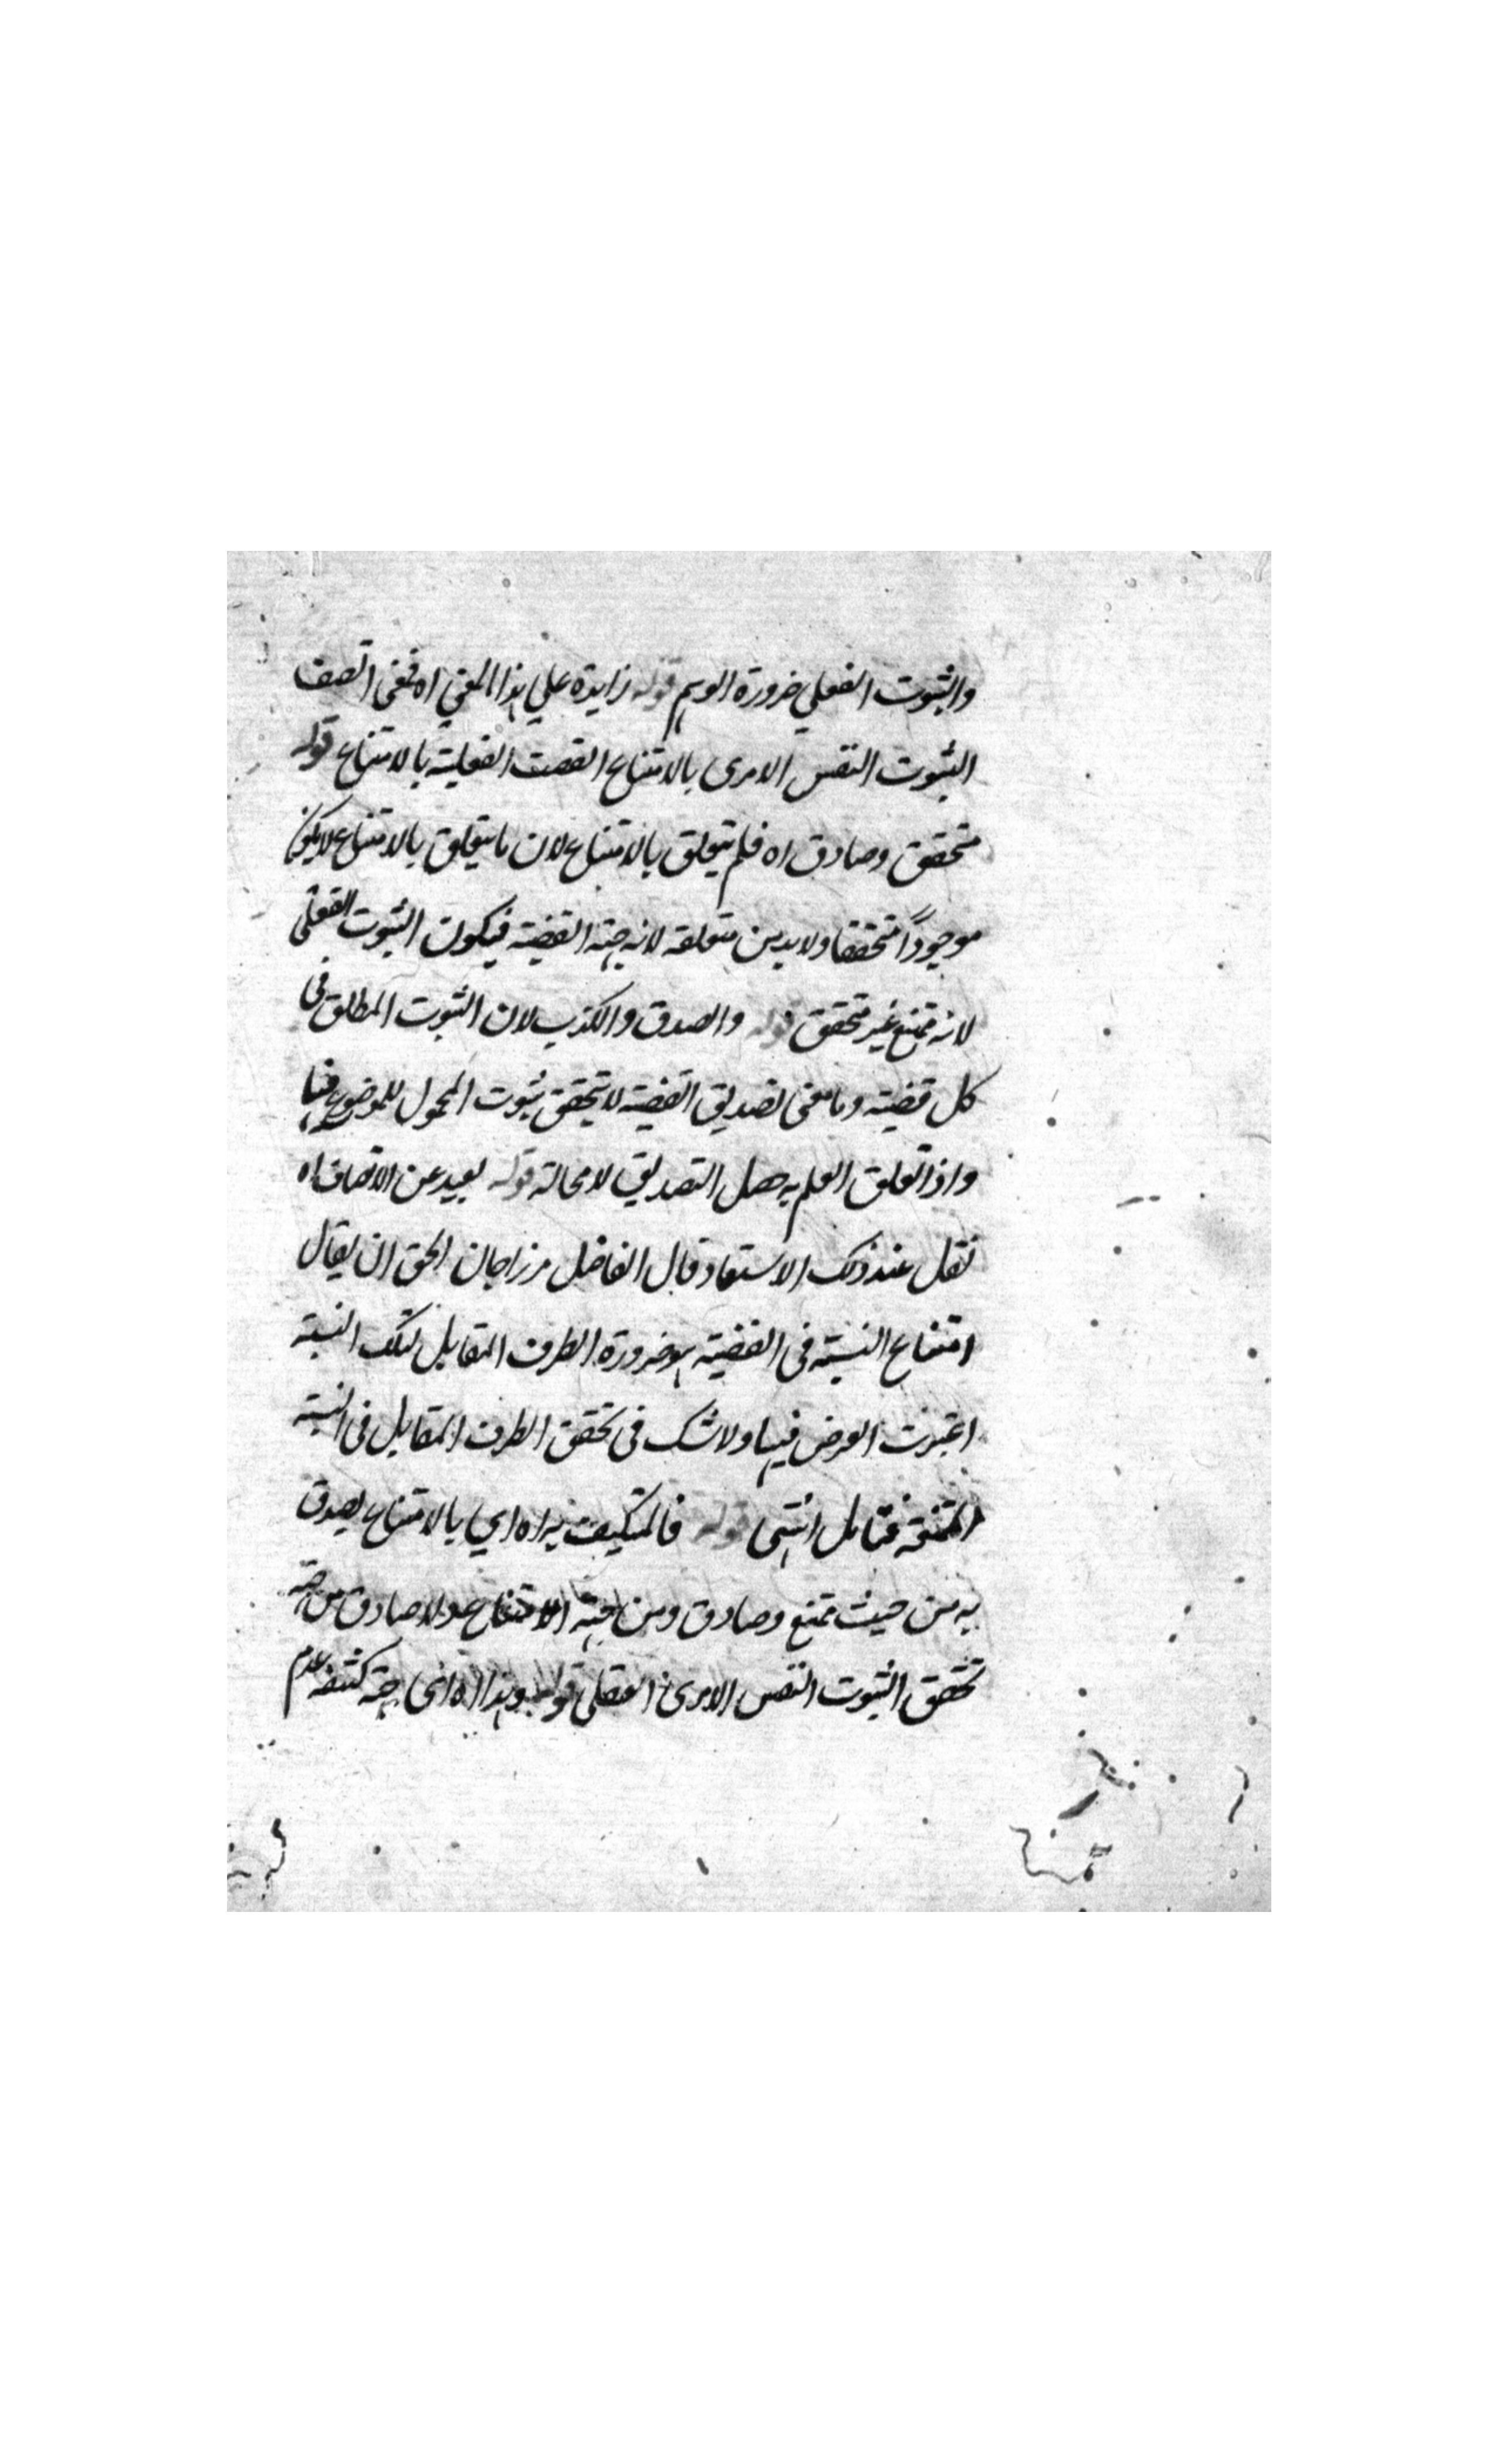 والثبوت الفعلي ضرورة الوهم قوله زايدة علي هذا المعني اه فمعنى اتصف
الثبوت النفس الامرى بالامتناع اتصفت الفعلية بالامتناع قوله
متحقق وصادق اه فلم يتعلق بالامتناع لان ما يتعلق بالامتناع لا يكون
موجوداً متحققا ولا بد من متعلقه لانه جهة القضية فيكون الثبوت الفعلى
لانه ممتنع غير متحقق قوله والصدق والكذب لان الثبوت المطلق فى
كل قضية وما معنى تصديق القضية لا يتحقق ثبوت المحمول للموضوع فيها
واذا تعلق العلم به حصل التصديق لا محالة قوله بعيد عن الانصاف اه
نقل عند ذلك الاستبعاد قال الفاضل مرزاجان الحق ان يقال
امتناع النسبة فى القضية هو ضرورة الطرف المقابل لتلك النسبة
اعتبرت العرض فيها ولا شك فى تحقق الطرف المقابل فى النسبة
الممتنعة فتامل انتهى قوله فالمتكيف به اه اي بالامتناع يصدق
به من حيث ممتنع وصادق ومن جهة الامتناع عدلا صادق من جهة
تحقق الثبوت النفس الامرى العقلى قوله وهذا اه انى جهة كشفه عدم